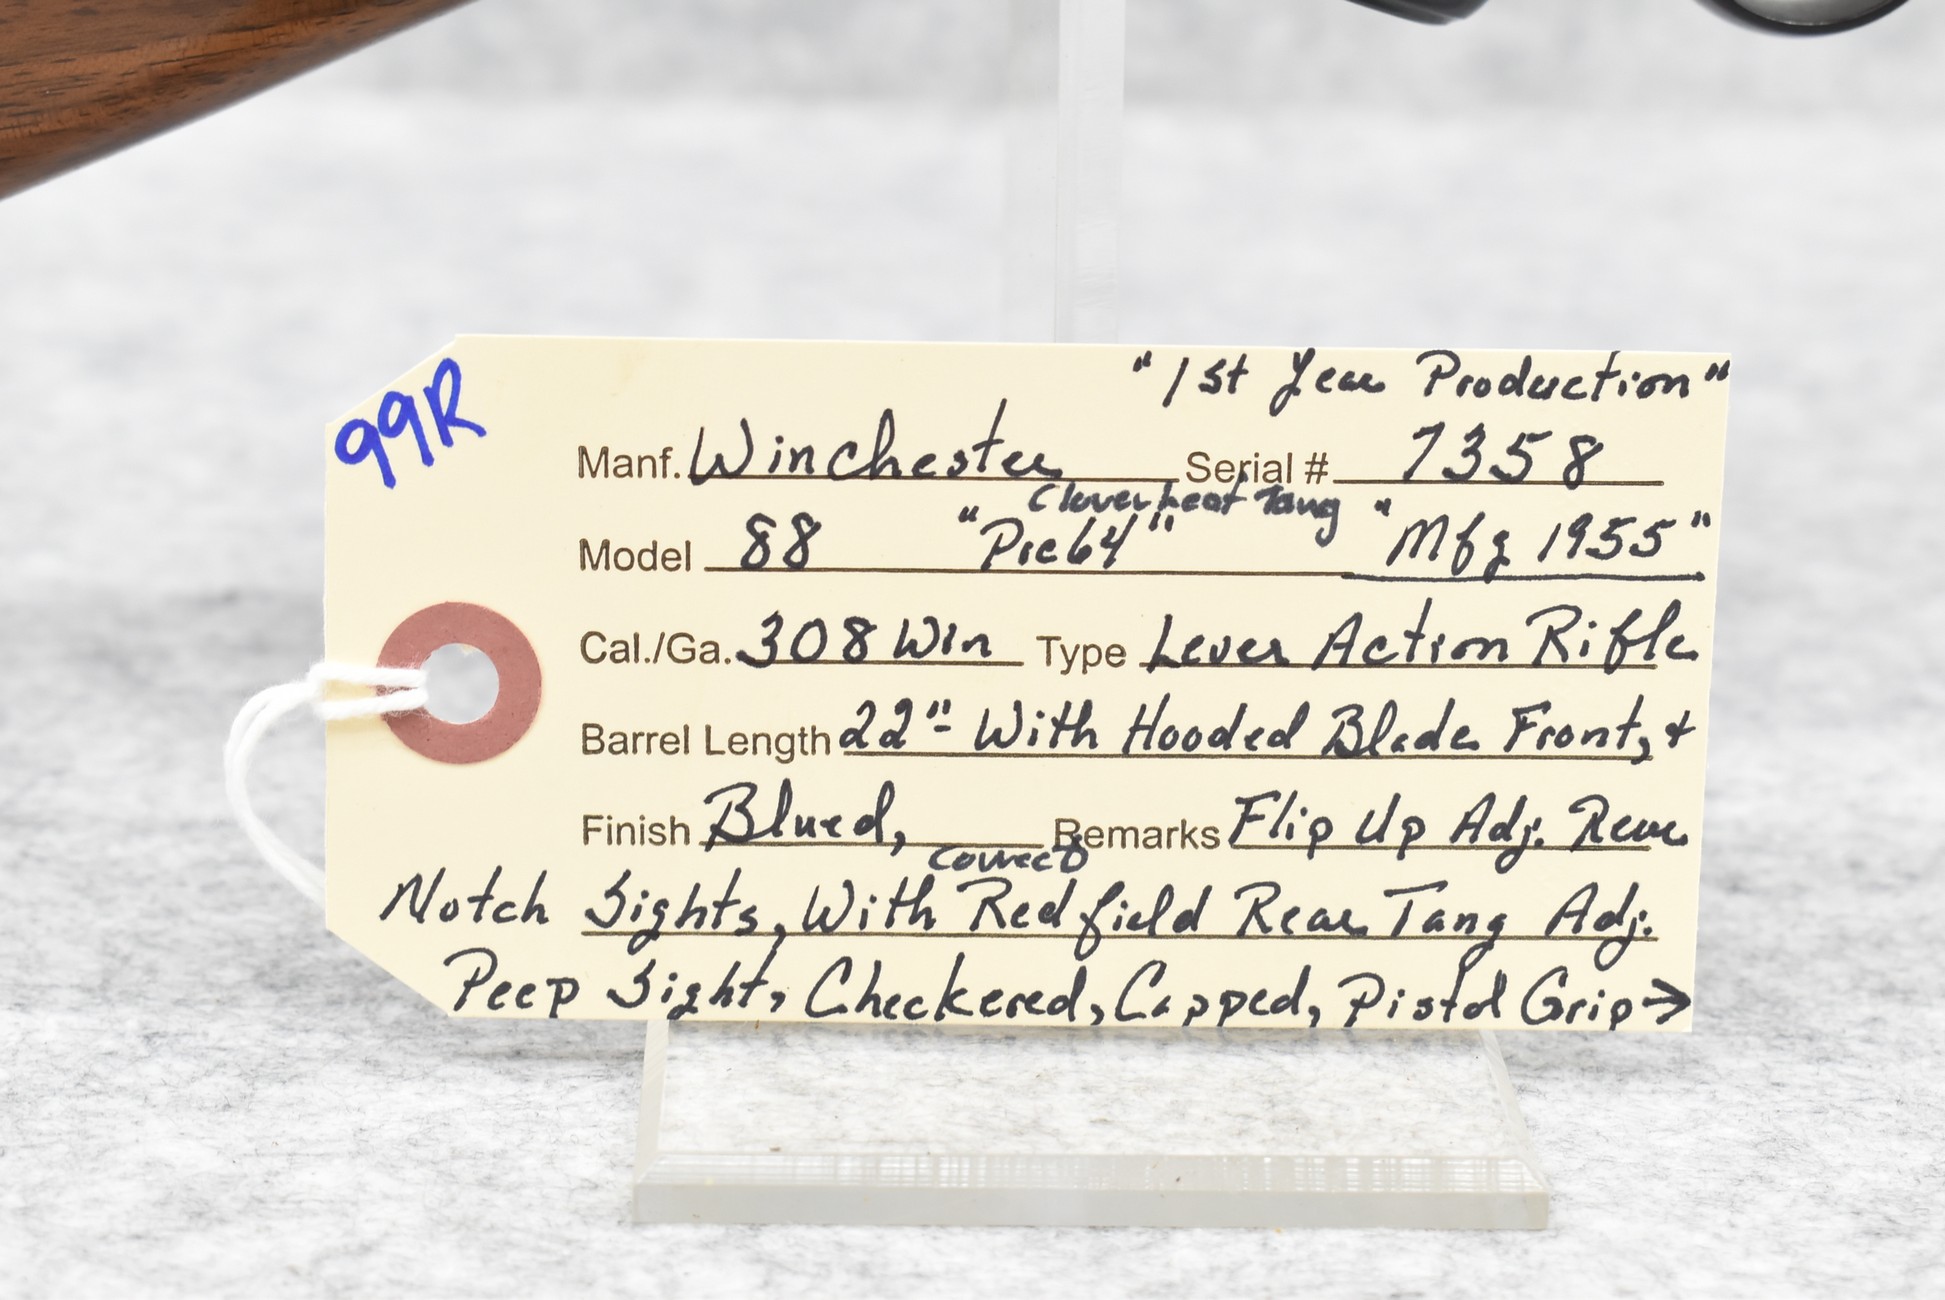 99R
"1st Year Production"
Manf. Winchester Serial # 7358
Cloverleaf Tang
Model 88 "Pre64" "Mfg 1955"
Cal./Ga. 308 Win Type Lever Action Rifle
Barrel Length 22"- With Hooded Blade Front, +
Finish Blued, Remarks Flip Up Adj. Rear
correct
Notch Sights, With Redfield Rear Tang Adj.
Peep Sight, Checkered, Capped, Pistol Grip →